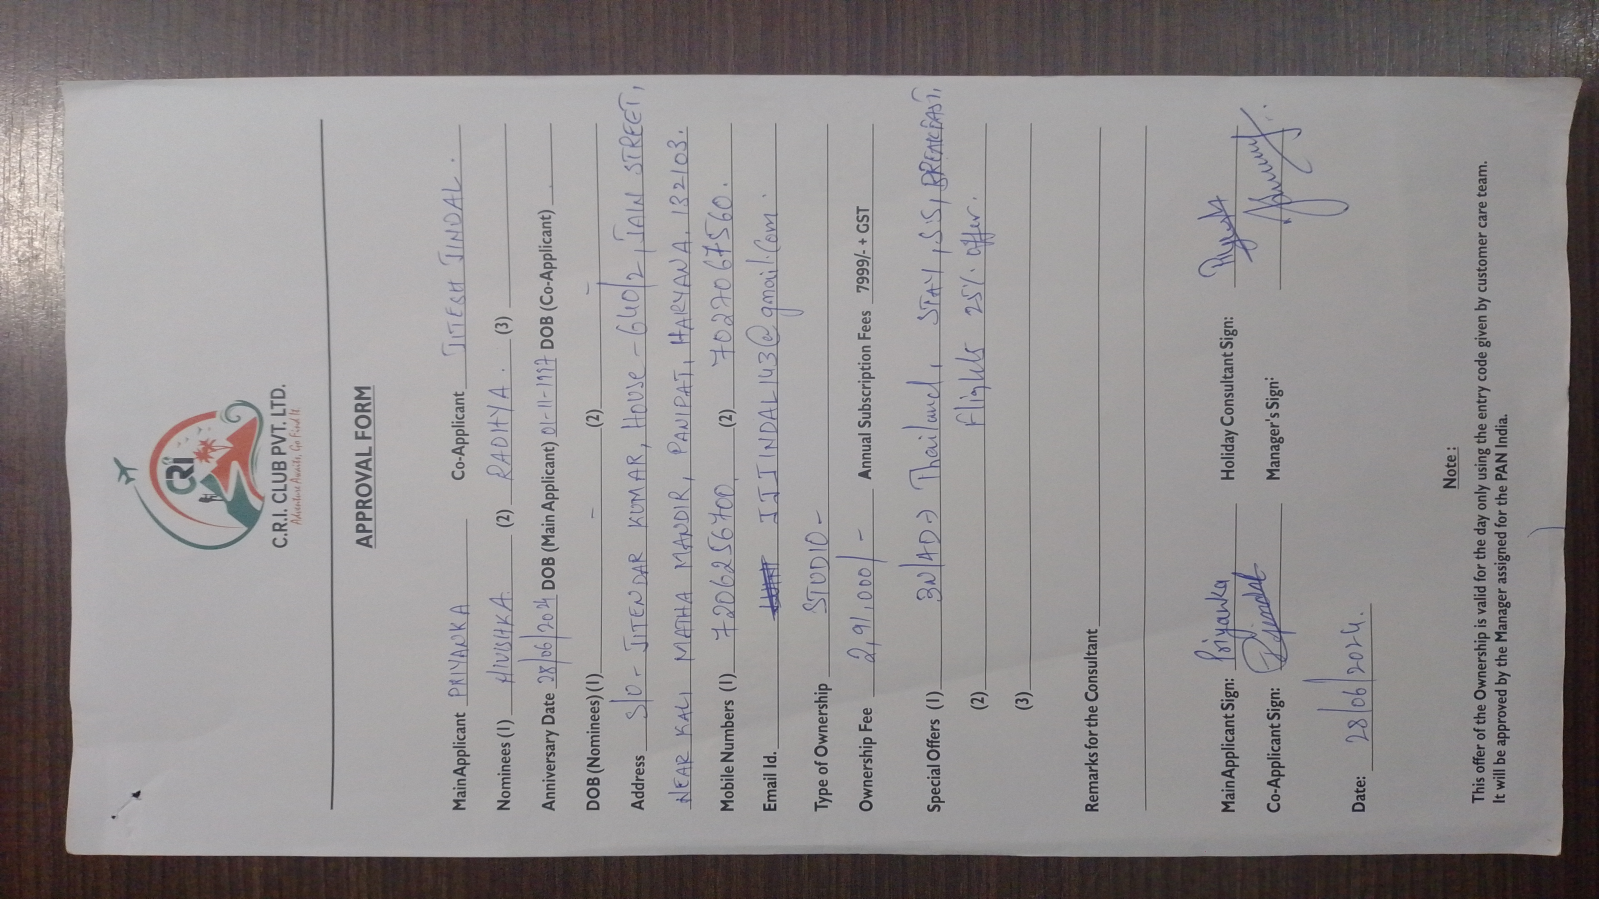 CRI
C.R.I. CLUB PVT. LTD.
Adventure Awaits, Go Find It.
APPROVAL FORM
Main Applicant PRIYANKA Co-Applicant JITESH JINDAL.
Nominees (1) HIVISHKA (2) RADHYA. (3)
Anniversary Date 28/06/2024 DOB (Main Applicant) 01-11-1997 DOB (Co-Applicant)
DOB (Nominees) (1) - (2) -
Address S/O - JITENDAR KUMAR, HOUSE - 640/2, JAIN STREET,
NEAR KALI MATHA MANDIR, PANIPAT, HARYANA. 132103.
Mobile Numbers (1) 7206256700, (2) 7022067560.
Email Id. JJJINDAL143@gmail.com.
Type of Ownership STUDIO -
Ownership Fee 2,91,000/- Annual Subscription Fees 7999/- + GST
Special Offers (1) 3N/4D → Thailand, STAY, S.S, BREAKFAST,
(2) Flights 25% offer.
(3)
Remarks for the Consultant
Main Applicant Sign: Priyanka Holiday Consultant Sign:
Co-Applicant Sign: Manager's Sign:
Date: 28/06/2024.
Note :
This offer of the Ownership is valid for the day only using the entry code given by customer care team.
It will be approved by the Manager assigned for the PAN India.